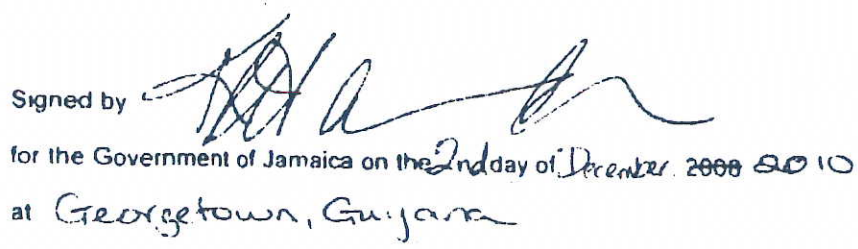 Signed by
for the Government of Jamaica on the 2nd day of December 2008 2010
at Georgetown, Guyana